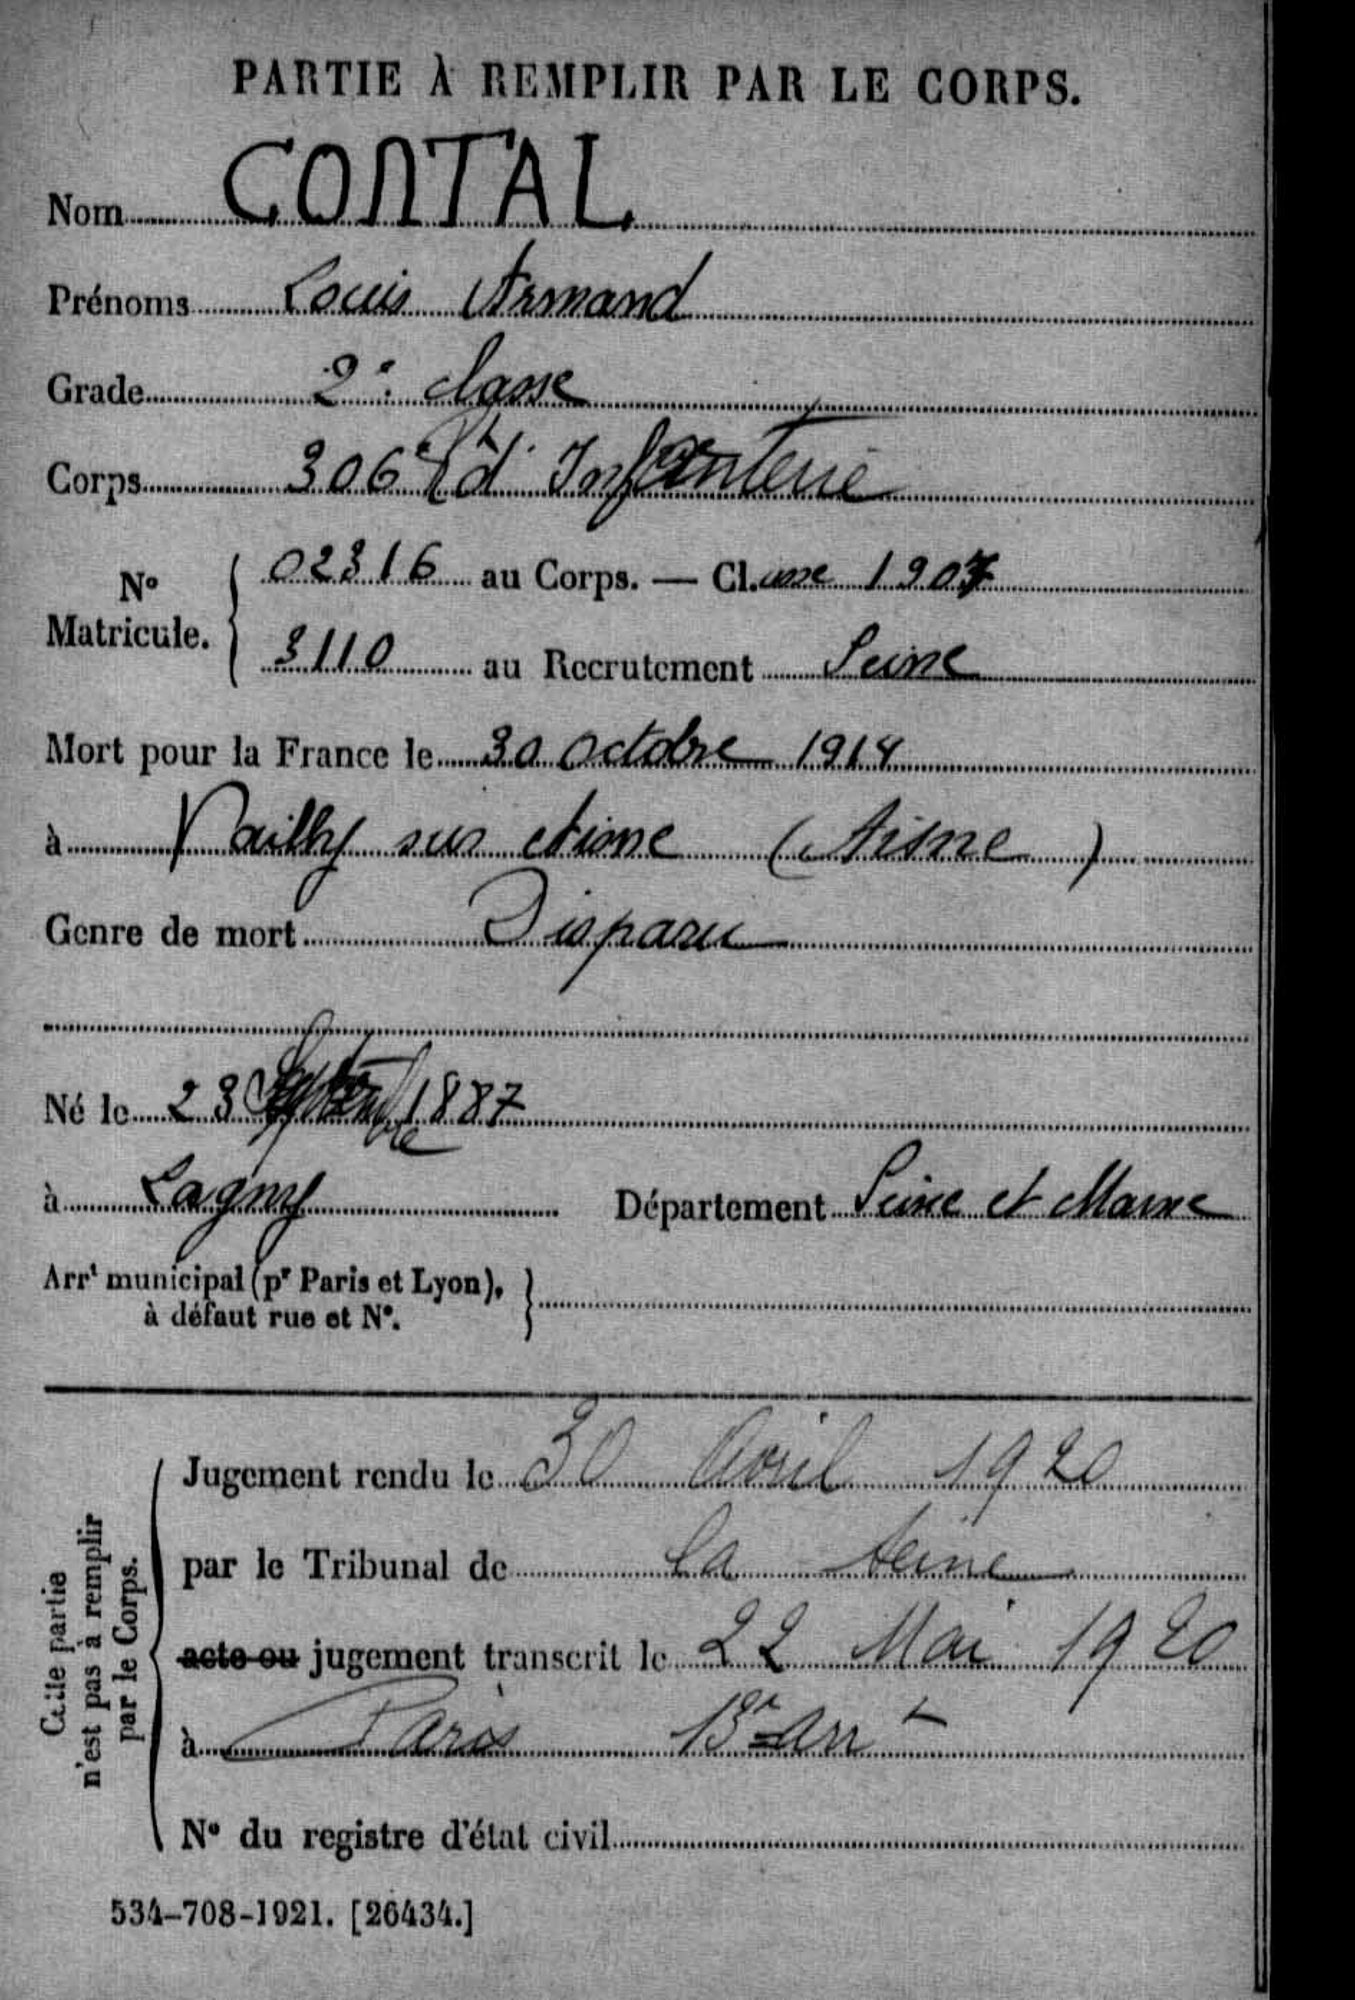 PARTIE À REMPLIR PAR LE CORPS.
Nom CONTAL
Prénoms Louis Armand
Grade 2e classe
Corps 306e Rt d'Infanterie
No Matricule. 02316 au Corps. — Cl.asse 1907
3110 au Recrutement Seine
Mort pour la France le 30 octobre 1914
à Vailly sur Aisne (Aisne)
Genre de mort Disparu
Né le 23 Septembre 1887
à Lagny Département Seine et Marne
Arrt municipal (pr Paris et Lyon), à défaut rue et No.
Cette partie n'est pas à remplir par le Corps.
Jugement rendu le 30 Avril 1920
par le Tribunal de la Seine
acte ou jugement transcrit le 22 Mai 1920
à Paris 13e Arrt
No du registre d'état civil
534-708-1921. [26434.]